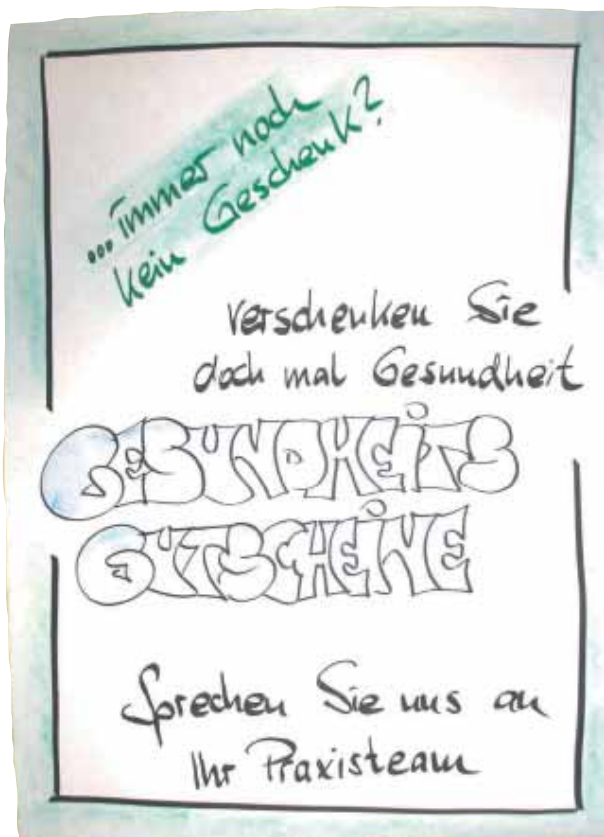 ...immer noch
kein Geschenk?
verschenken Sie
doch mal Gesundheit
GESUNDHEITS
GUTSCHEINE
Sprechen Sie uns an
Ihr Praxisteam